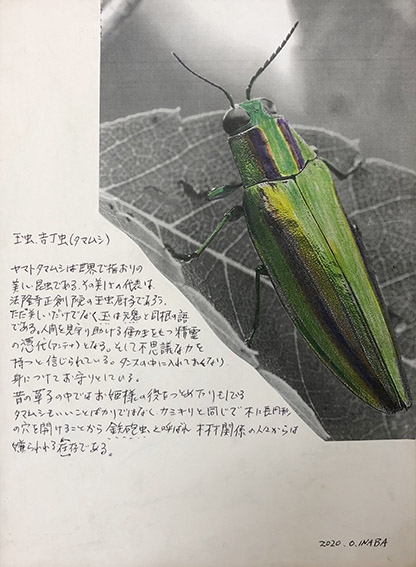 玉虫、吉丁虫(タマムシ)
ヤマトタマムシは世界で指おりの
美しい昆虫である。その美しさの代表は、
法隆寺正創院の玉虫厨子であろう、
ただ美しいだけでなく、玉は元鬼と同根の語
である。人間を見守り助ける働きをもつ精霊
の憑代(アニマ)となる。そして不思議な力を
持つと信じられている。タンスの中に入れておくなり
身につけてお守りとしている。
昔の草子の中ではお姫様の役をつとめたりもしてる
タマムシもいいことばかりではなく、カミキリと同じで木に長円形
の穴を開けることから鉄砲虫と呼ばれ 木材関係の人々からは
嫌られれる存在である。
2020. O. INABA